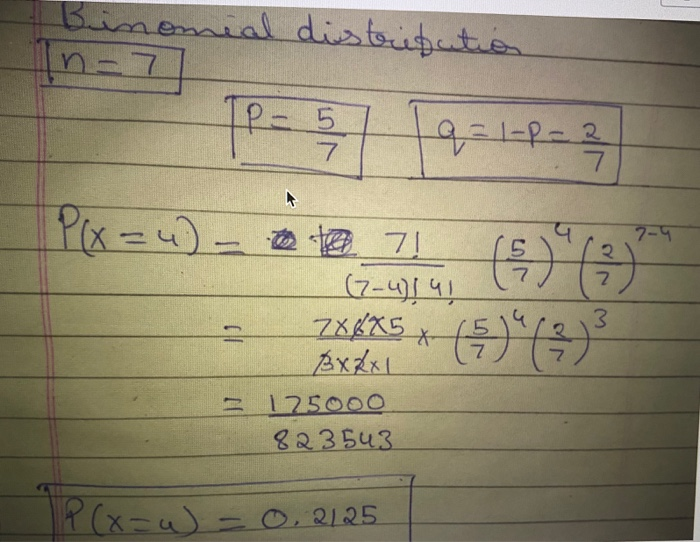 Binomial distribution
n = 7
P = 5/7
q = 1-P = 2/7
P(x = 4) = 7! / (7-4)! 4! (5/7)^4 (2/7)^7-4
= 7x6x5 / 3x2x1 x (5/7)^4 (2/7)^3
= 175000 / 823543
P(x=4) = 0.2125